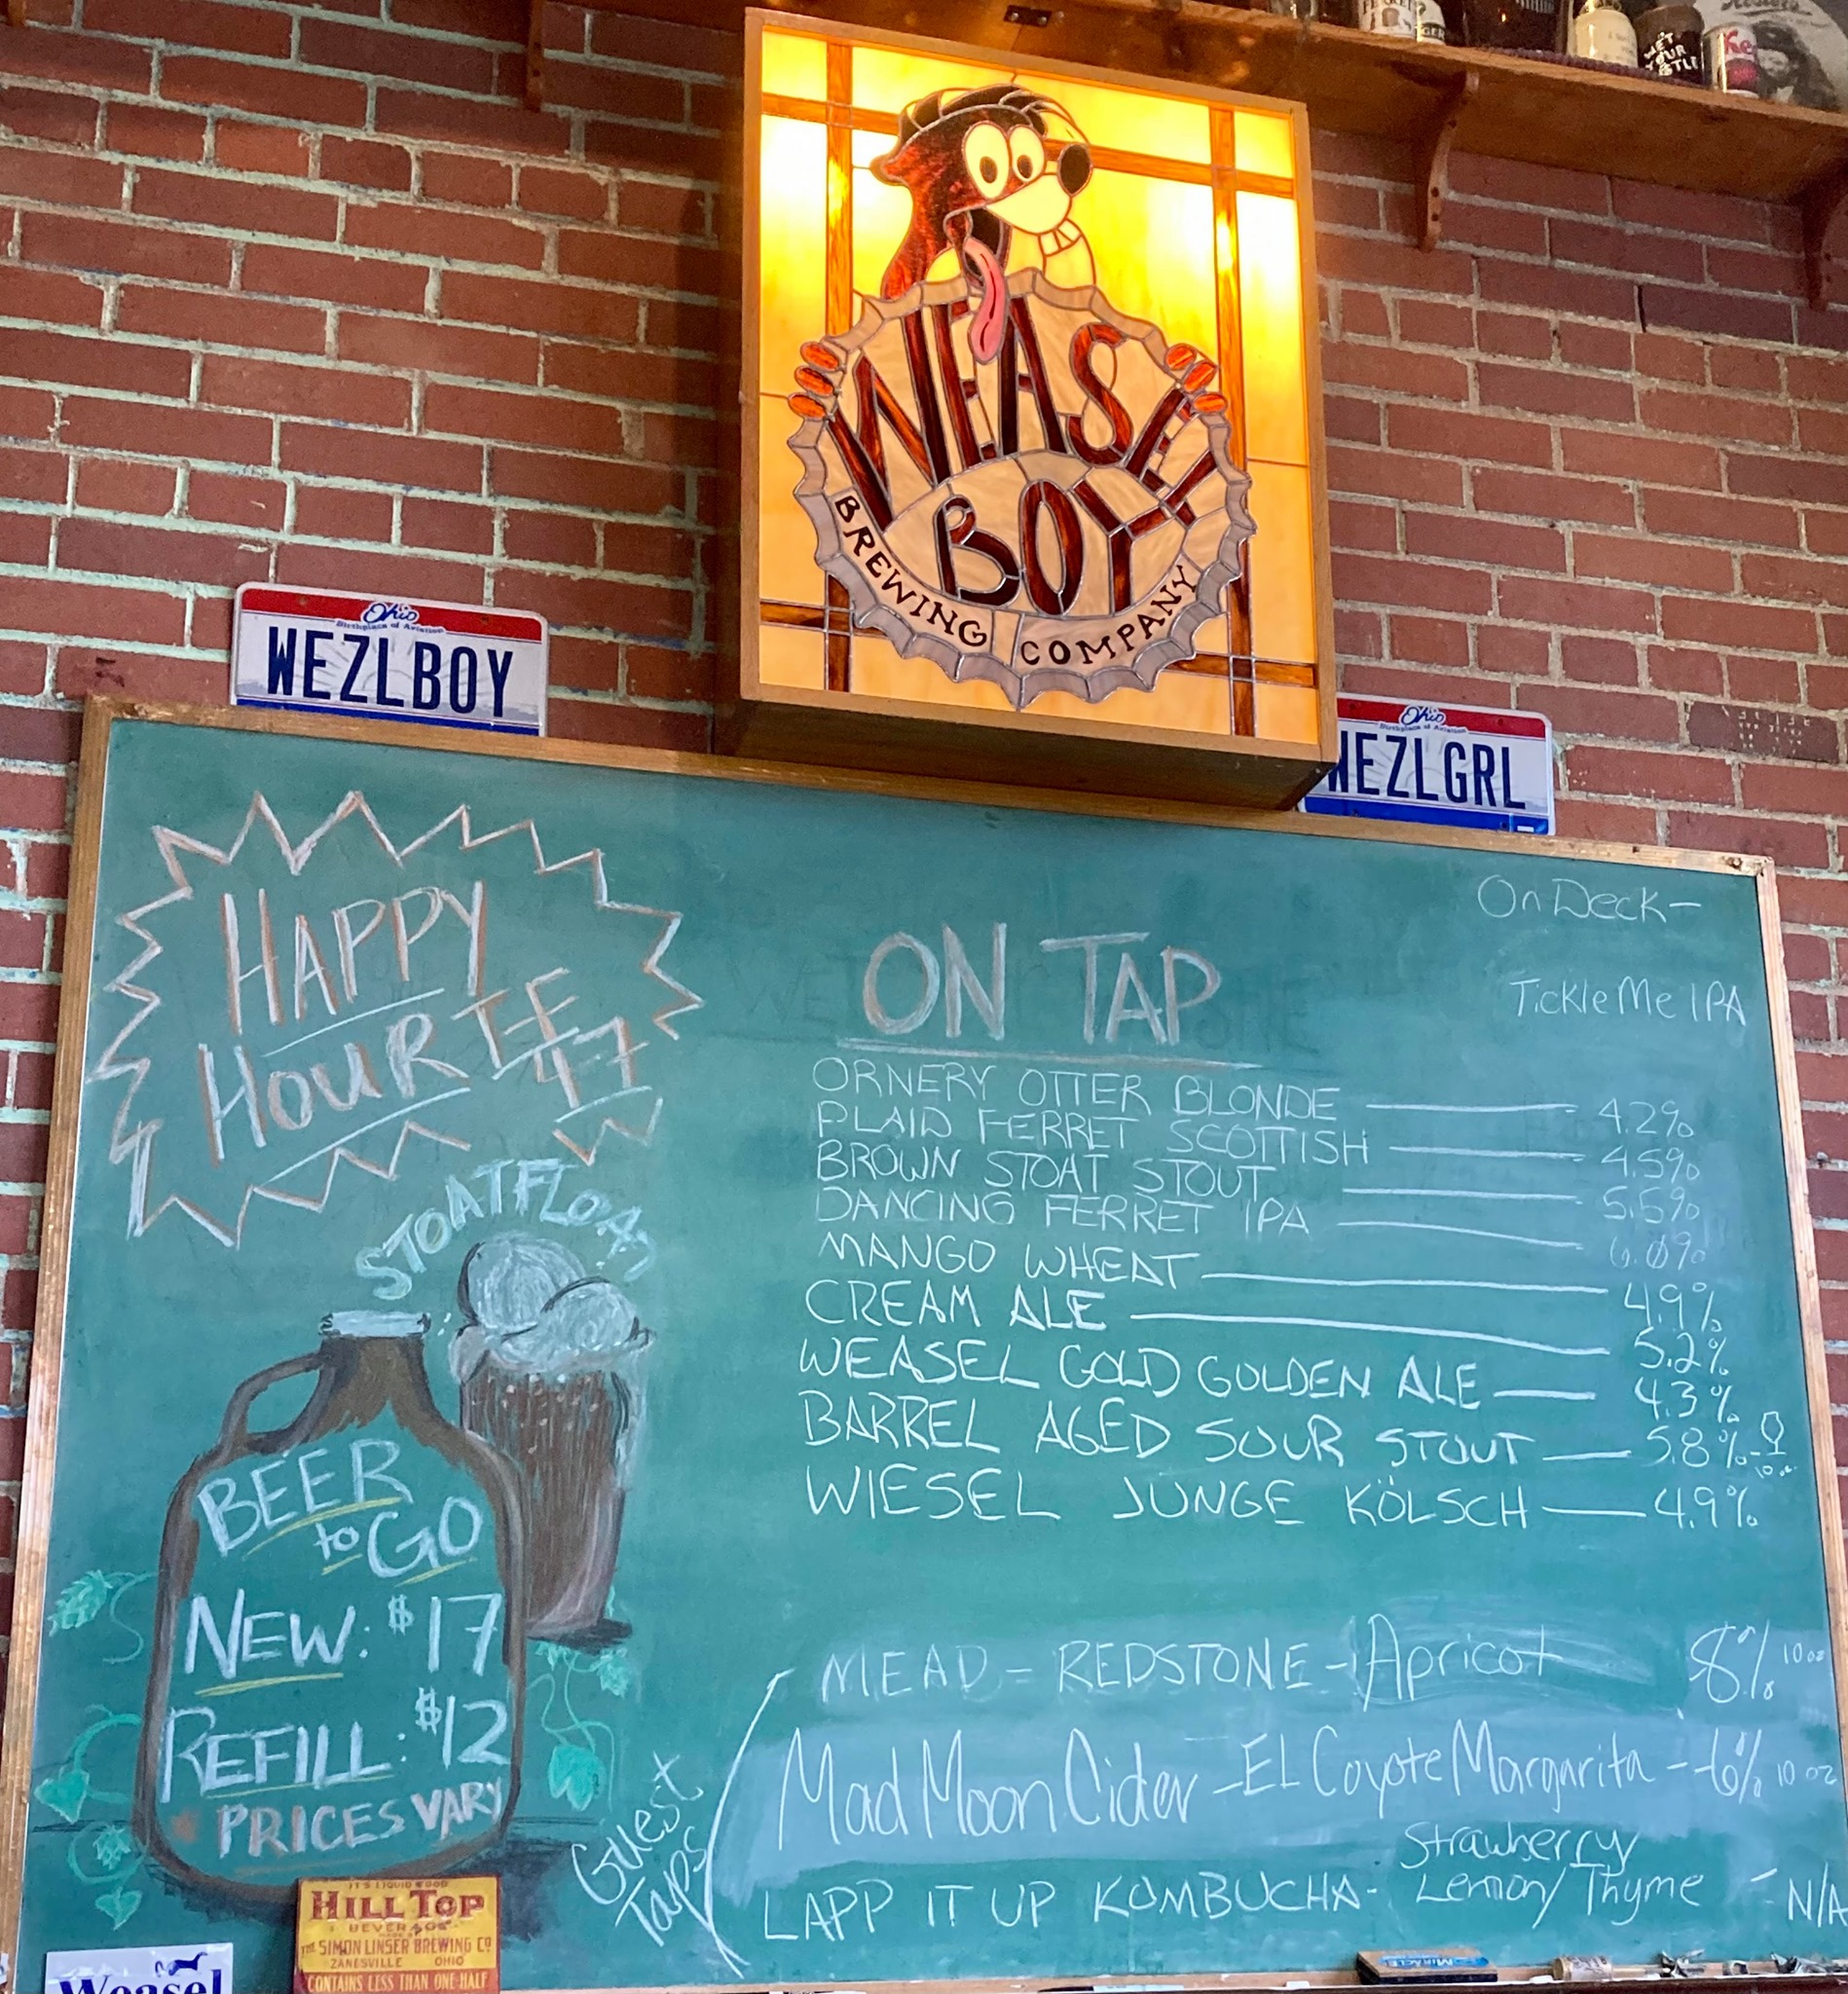 WET YOUR
Ke
WEASEL
BOY
BREWING COMPANY
Ohio
Birthplace of Aviation
WEZLBOY
Ohio
Birthplace of Aviation
WEZLGRL
HAPPY
HOUR
4-7
STOATFLOAT
BEER
to GO
NEW: $17
REFILL: $12
PRICES VARY
On Deck-
Tickle Me IPA
ON TAP
ORNERY OTTER BLONDE 4.2%
PLAID FERRET SCOTTISH 4.5%
BROWN STOAT STOUT 5.5%
DANCING FERRET IPA 6.0%
MANGO WHEAT 4.9%
CREAM ALE 5.2%
WEASEL GOLD GOLDEN ALE 4.3%
BARREL AGED SOUR STOUT 5.8%
WIESEL JUNGE KÖLSCH 4.9%
Guest
Taps
MEAD - REDSTONE - Apricot 8% 10 oz
Mad Moon Cider - EL Coyote Margarita - 6% 10 oz
Strawberry
LAPP IT UP KOMBUCHA - Lemon/Thyme - N/A
IT'S LIQUID FOOD
HILL TOP
BEVERAGE
THE SIMON LINSER BREWING CO
ZANESVILLE OHIO
CONTAINS LESS THAN ONE-HALF
Weasel
MIRACLE